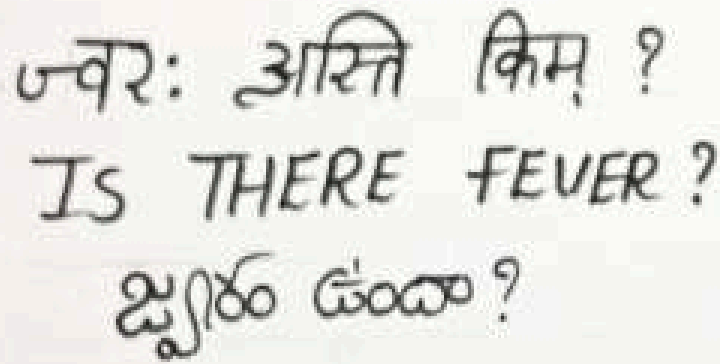 ज्वर: अस्ति किम् ?
IS THERE FEVER ?
జ్వరం ఉందా ?